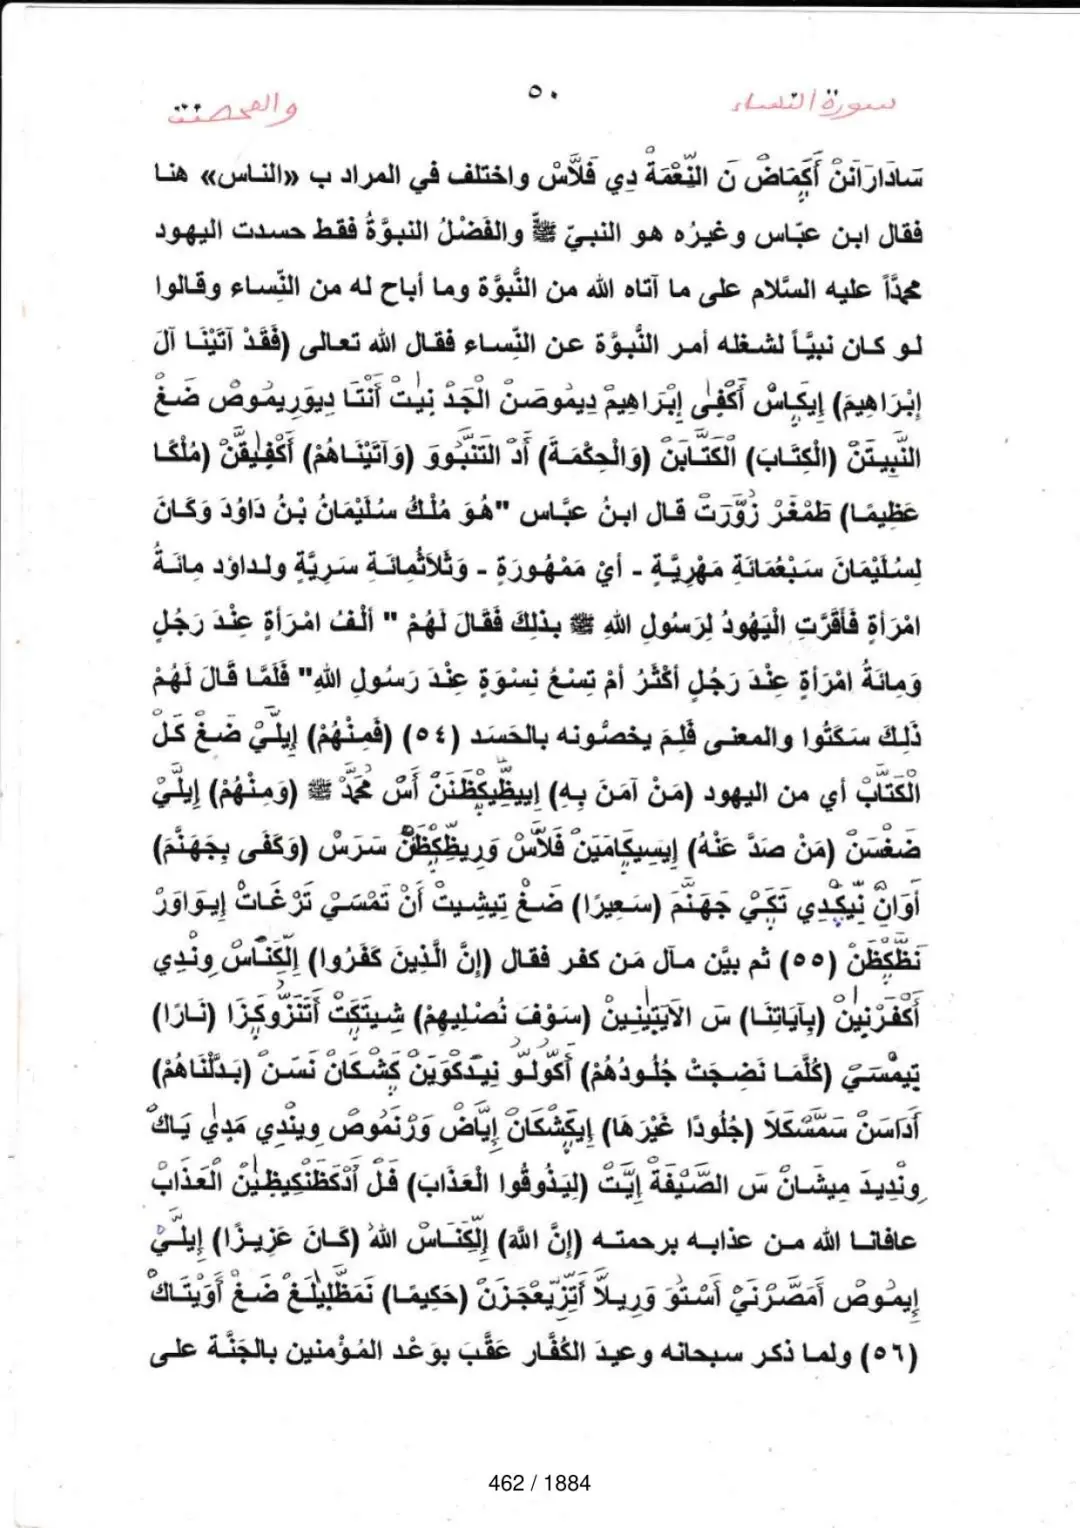 سورة النساء
٥٠
والمحصنت
سَادَارَانَنْ أَكَمَاضْ نَ النِّعْمَةْ دِي فَلَّاسْ واختلف في المراد ب «الناس» هنا
فقال ابن عبّاس وغيرُه هو النبيّ ﷺ والفَضْلُ النبوَّةُ فقط حسدت اليهود
محمَّداً عليه السَّلام على ما آتاه الله من النُّبوَّة وما أباح له من النِّساء وقالوا
لو كان نبيّاً لشغله أمر النُّبوَّة عن النِّساء فقال الله تعالى (فَقَدْ آتَيْنَا آلَ
إِبْرَاهِيمَ) إِيكَاسْ أَكْفِىٰ إِبْرَاهِيمْ دِيمُوصَنْ الْجَدْ نِيتْ أَنْتَا دِيوَرِيمُوصْ ضَغْ
النَّبِيتَنْ (الْكِتَابَ) الْكَتَّابَنْ (وَالْحِكْمَةَ) أَدْ التَنْبُووَ (وَآتَيْنَاهُمْ) أَكْفِيقَنْ (مُلْكًا
عَظِيمًا) طَمْغَرْ زُوَّرَتْ قال ابنُ عبَّاس "هُوَ مُلْكُ سُلَيْمَانُ بْنُ دَاوُدَ وَكَانَ
لِسُلَيْمَانَ سَبْعُمَائَةِ مَهْرِيَّةٍ - أيْ مَمْهُورَةٍ - وَثَلَاثُمِائَةِ سَرِيَّةٍ ولداوُد مِائَةُ
امْرَأةٍ فَأَقَرَّتِ الْيَهُودُ لِرَسُولِ اللهِ ﷺ بذلِكَ فَقَالَ لَهُمْ " ألْفُ امْرَأةٍ عِنْدَ رَجُلٍ
وَمِائَةُ امْرَأةٍ عِنْدَ رَجُلٍ أكْثَرُ أمْ تِسْعُ نِسْوَةٍ عِنْدَ رَسُولِ اللهِ" فَلَمَّا قَالَ لَهُمْ
ذَلِكَ سَكَتُوا والمعنى فَلِمَ يخصُّونه بالحَسَد (٥٤) (فَمِنْهُمْ) إِيلَيْ ضَغْ كَلْ
الْكَتَّابْ أي من اليهود (مَنْ آمَنَ بِهِ) إِييظَّيكَظَنَنْ أَسْ مُحَمَّدْ ﷺ (وَمِنْهُمْ) إِيلَيْ
ضَغْسَنْ (مَنْ صَدَّ عَنْهُ) إِيسِيكَامَيَنْ فَلَّاسْ وَرِيظَّكِظَنْ سَرَسْ (وَكَفَى بِجَهَنَّمَ)
أَوَانْ نِّيكْدِي تَكَيْ جَهَنَّمَ (سَعِيرًا) ضَغْ تِيشِيتْ أَنْ تَمْسَيْ تَرْغَاتْ إِيوَاوَرْ
نَظَّكِظَنْ (٥٥) ثم بيَّن مآل مَن كفر فقال (إِنَّ الَّذِينَ كَفَرُوا) إِلْكَنَاسْ وِنْدِي
أَكْفَرْنِينْ (بِآيَاتِنَا) سَ الآيَتِينِينْ (سَوْفَ نُصْلِيهِمْ) شِيتَكَتْ أَتَنَزُّوكَزَا (نَارًا)
تِيمْسَيْ (كُلَّمَا نَضِجَتْ جُلُودُهُمْ) أَكُّولُوْ نِيدَكْوَيَنْ كَشْكَانْ نَسَنْ (بَدَّلْنَاهُمْ)
أَدَاسَنْ سَمَّسْكَلَا (جُلُودًا غَيْرَهَا) إِيكَشْكَانْ إِيَّاضْ وَرْنَمُوصْ وِينْدِي مَدِي يَاكْ
وِنْدِيدَ مِيشَانْ سَ الصَّيْفَةْ إِيَّتْ (لِيَذُوقُوا الْعَذَابَ) فَلْ أَدْكَظَنْكِيظِينْ الْعَذَابْ
عافانا الله من عذابه برحمته (إِنَّ اللَّهَ) إِلْكَنَاسْ اللهُ (كَانَ عَزِيزًا) إِيلَيْ
إِيمُوصْ أَمَصَّرْنَيْ أَسْتُوَ وَرِيلَا أَتِزِّيعْجَزَنْ (حَكِيمًا) نَمَظَّلِيلَغْ ضَغْ أَوَيْتَاكْ
(٥٦) ولما ذكر سبحانه وعيدَ الكُفَّار عقَّبَ بوَعْد المُؤمنين بالجَنَّة على
462 / 1884